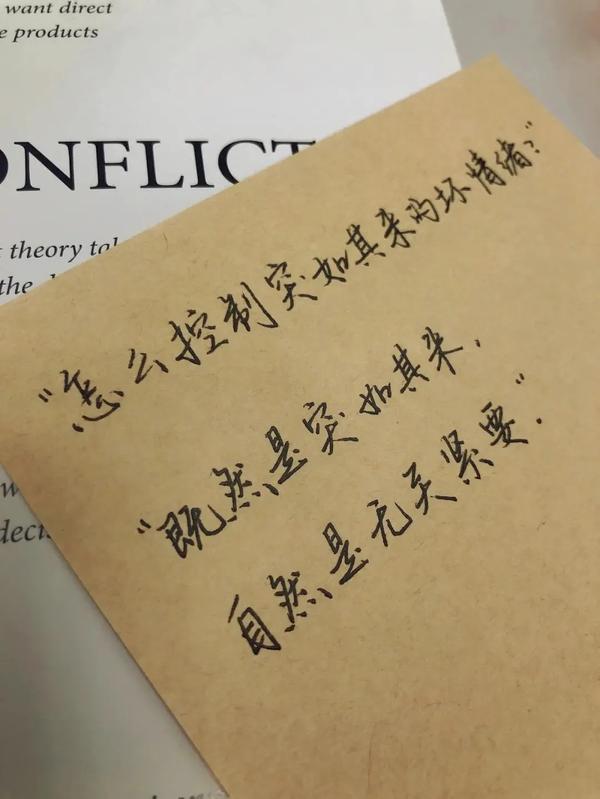 want direct
e products
ONFLICT
t theory tal
the
"怎么控制突如其来的坏情绪?"
"既然是突如其来,
自然是无关紧要."
w
decis